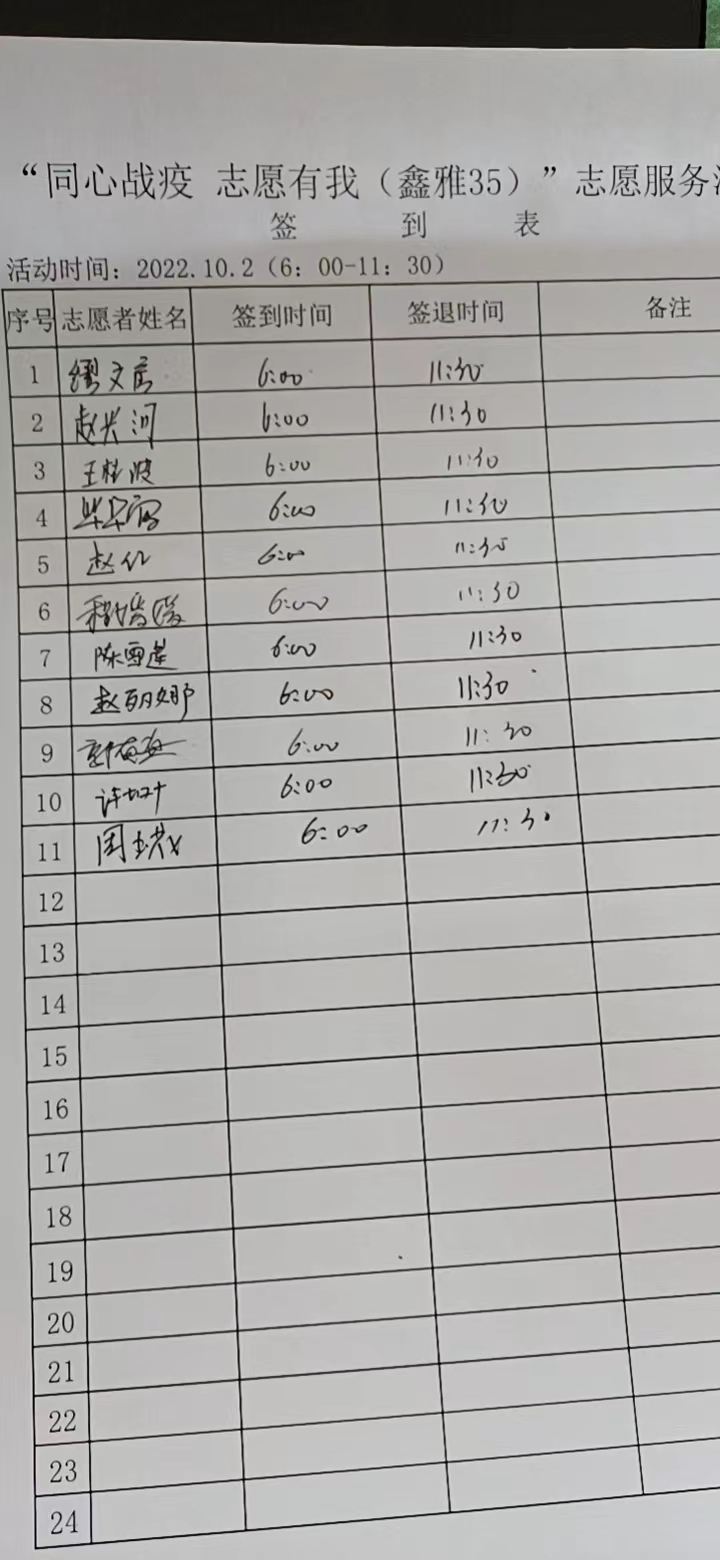 “同心战疫 志愿有我（鑫雅35）”志愿服务
签 到 表
活动时间：2022.10.2（6：00-11：30）
序号 志愿者姓名 签到时间 签退时间 备注
1 6:00 11:30
2 赵兴河 6:00 11:30
3 王桂波 6:00 11:30
4 6:00 11:30
5 赵 6:00 11:30
6 6:00 11:30
7 陈雪莲 6:00 11:30
8 赵丽娜 6:00 11:30
9 6:00 11:30
10 6:00 11:30
11 周 6:00 11:30
12
13
14
15
16
17
18
19
20
21
22
23
24